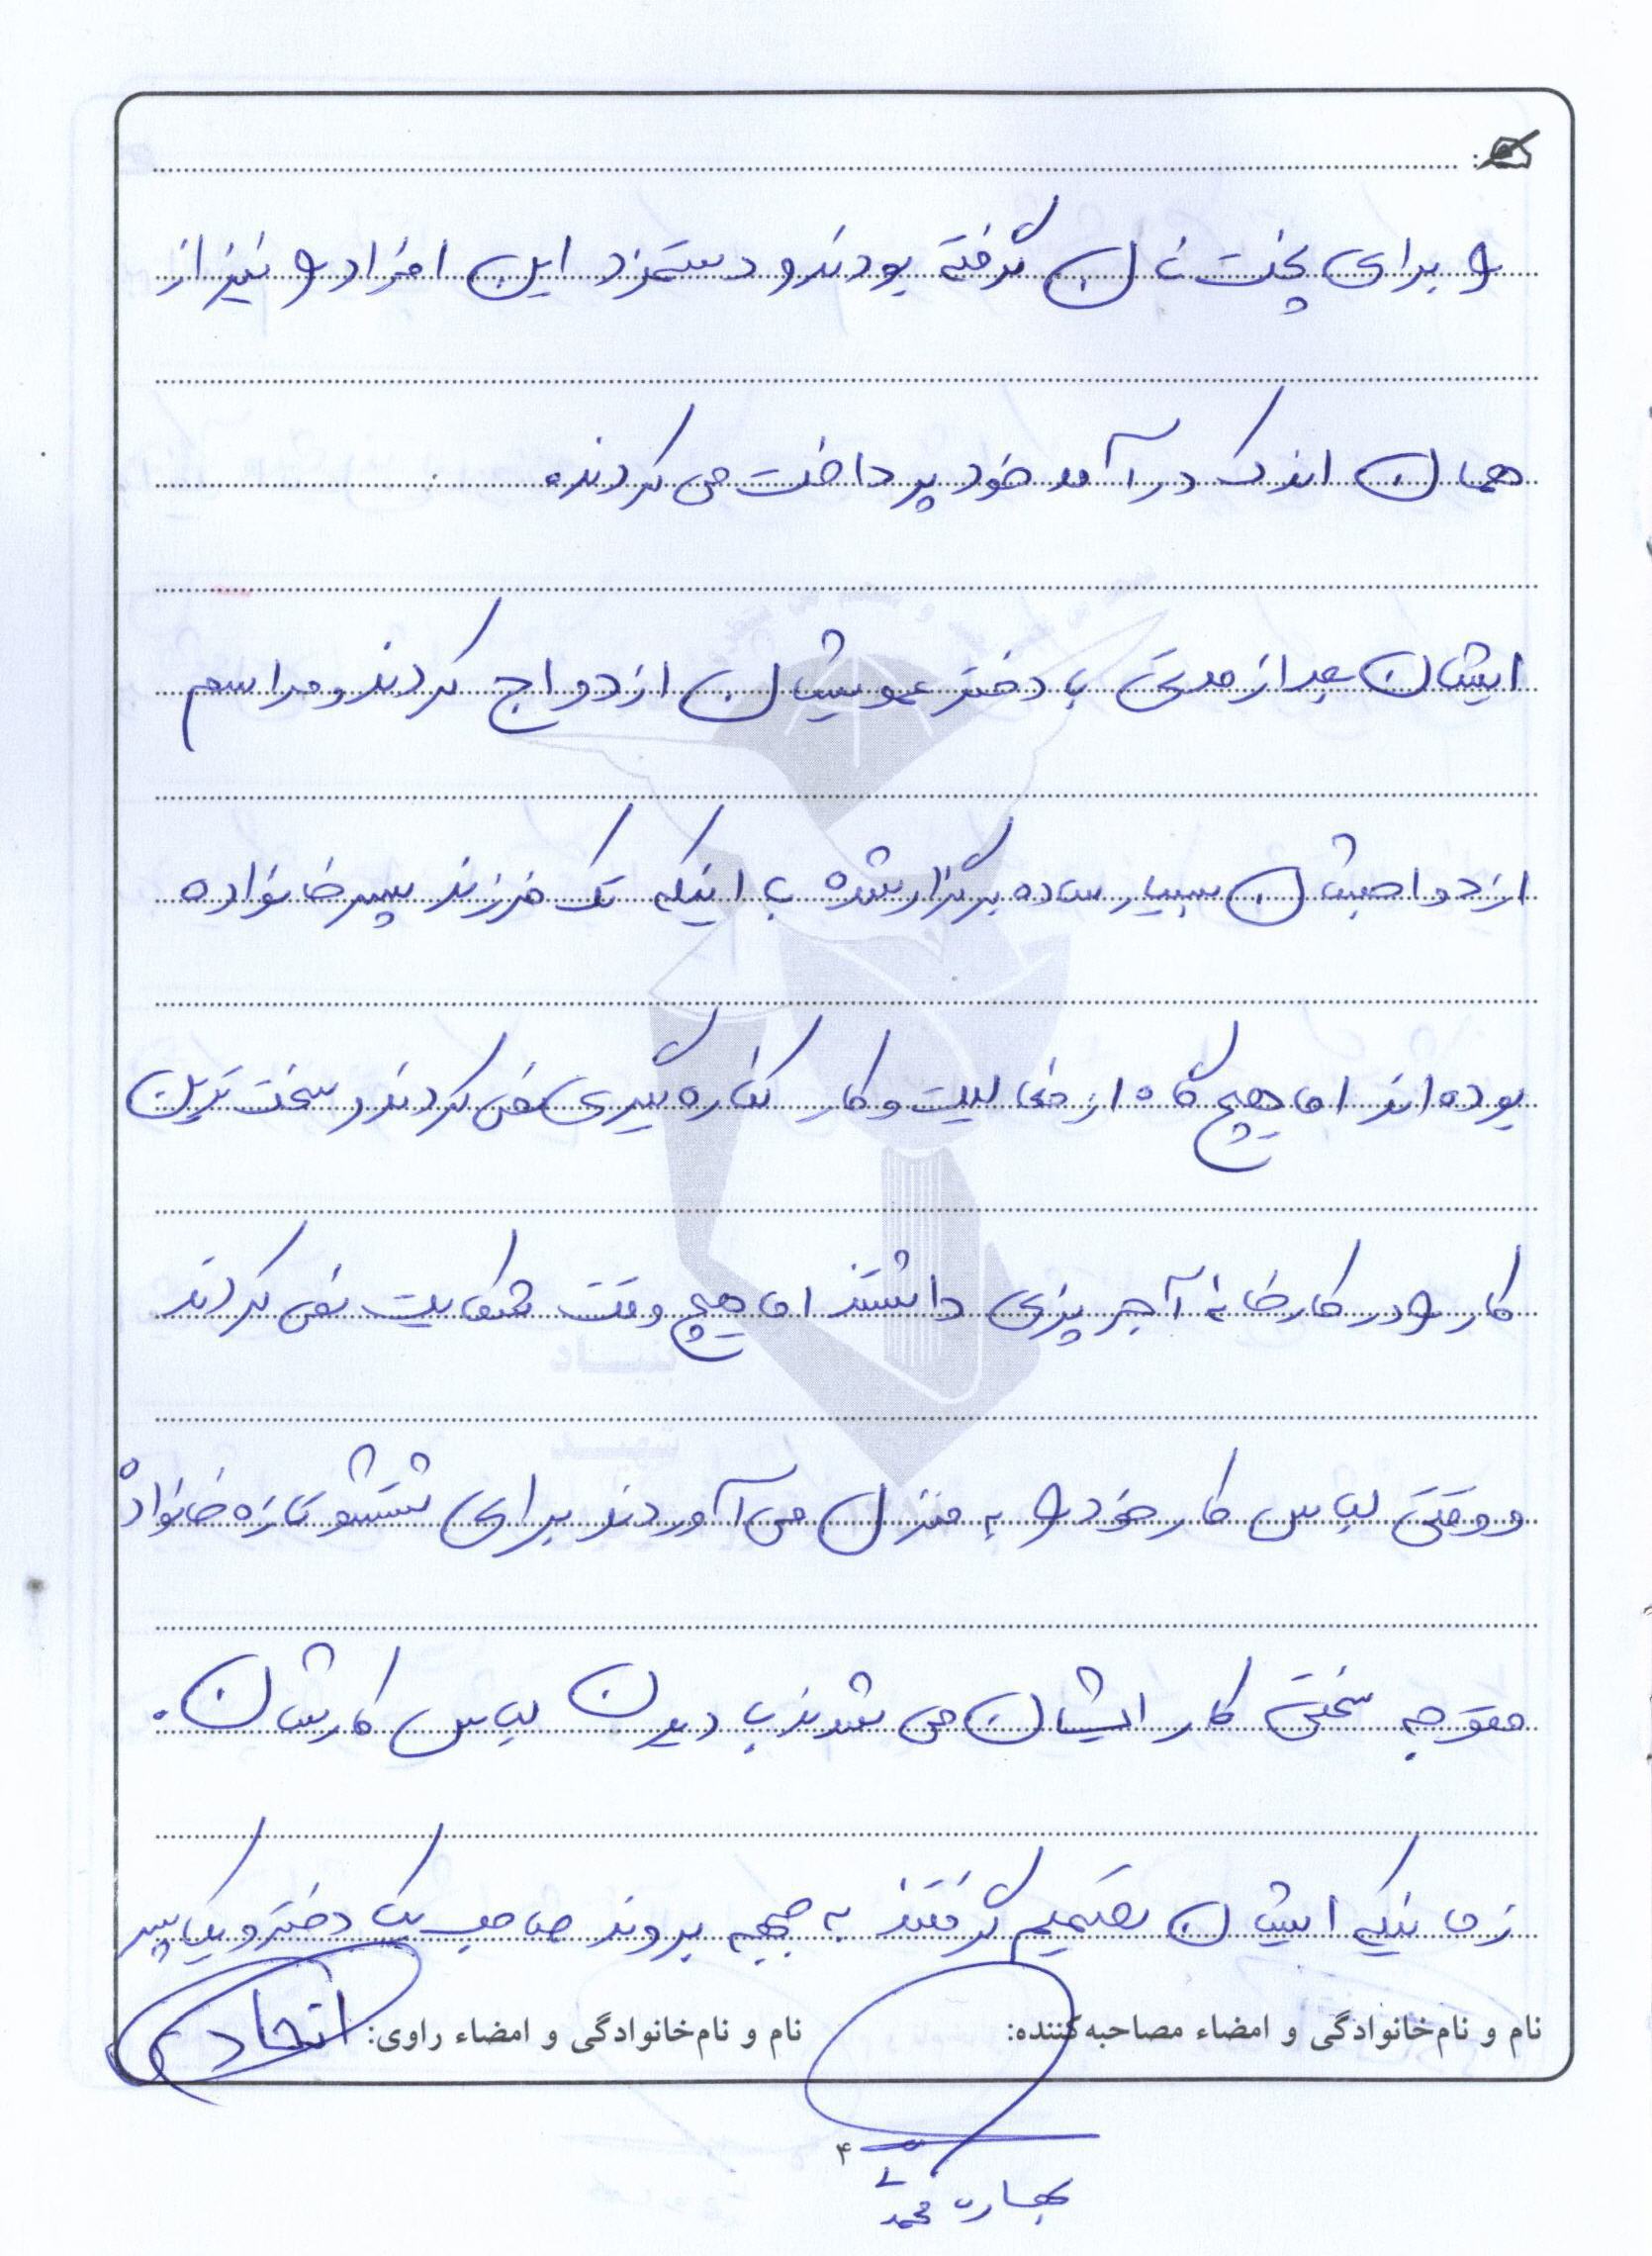 را برای پخت نان گرفته بودند و دستمزد این افراد را نیز از
همان اندک درآمد خود پرداخت می کردند.
ایشان بعد از مدتی با دختر عمویشان ازدواج کردند و مراسم
ازدواجشان بسیار ساده برگزار شده با اینکه تک فرزند پسر خانواده
بوده اند اما هیچ گاه از فعالیت و کار کناره گیری نمی کردند و سخت ترین
کار را در کارخانه آجر پزی داشتند اما هیچ وقت شکایت نمی کردند
و وقتی لباس کار خود را به منزل می آوردند برای شستشو تازه خانواده
متوجه سختی کار ایشان می شدند با دیدن لباس کارشان.
زمانیکه ایشان تصمیم گرفتند به جبهه بروند صاحب یک دختر و یک پسر
نام و نام‌خانوادگی و امضاء مصاحبه‌کننده: نام و نام‌خانوادگی و امضاء راوی: اتحاد
۴